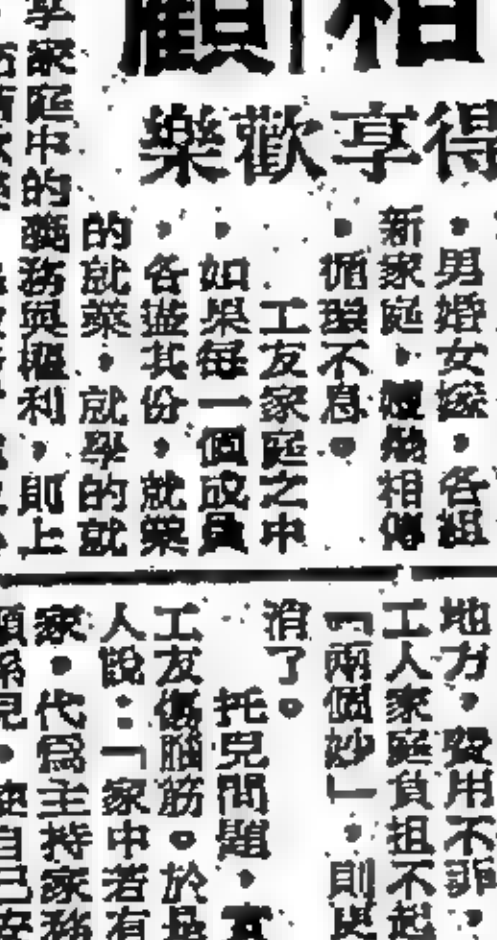 相顧
得享歡樂
，男婚女嫁，各組
新家庭，嬗遞相傳
，循環不息。
工友家庭之中
，如果每一個成員
，各盡其份，就業
的就業，就學的就
家庭中的義務與權利，則上
地方，費用不菲，
工人家庭負担不起
「兩個妙」，則
消了。
托兒問題，
工友傷腦筋。於是
人說：「家中若有
家，代為主持家務